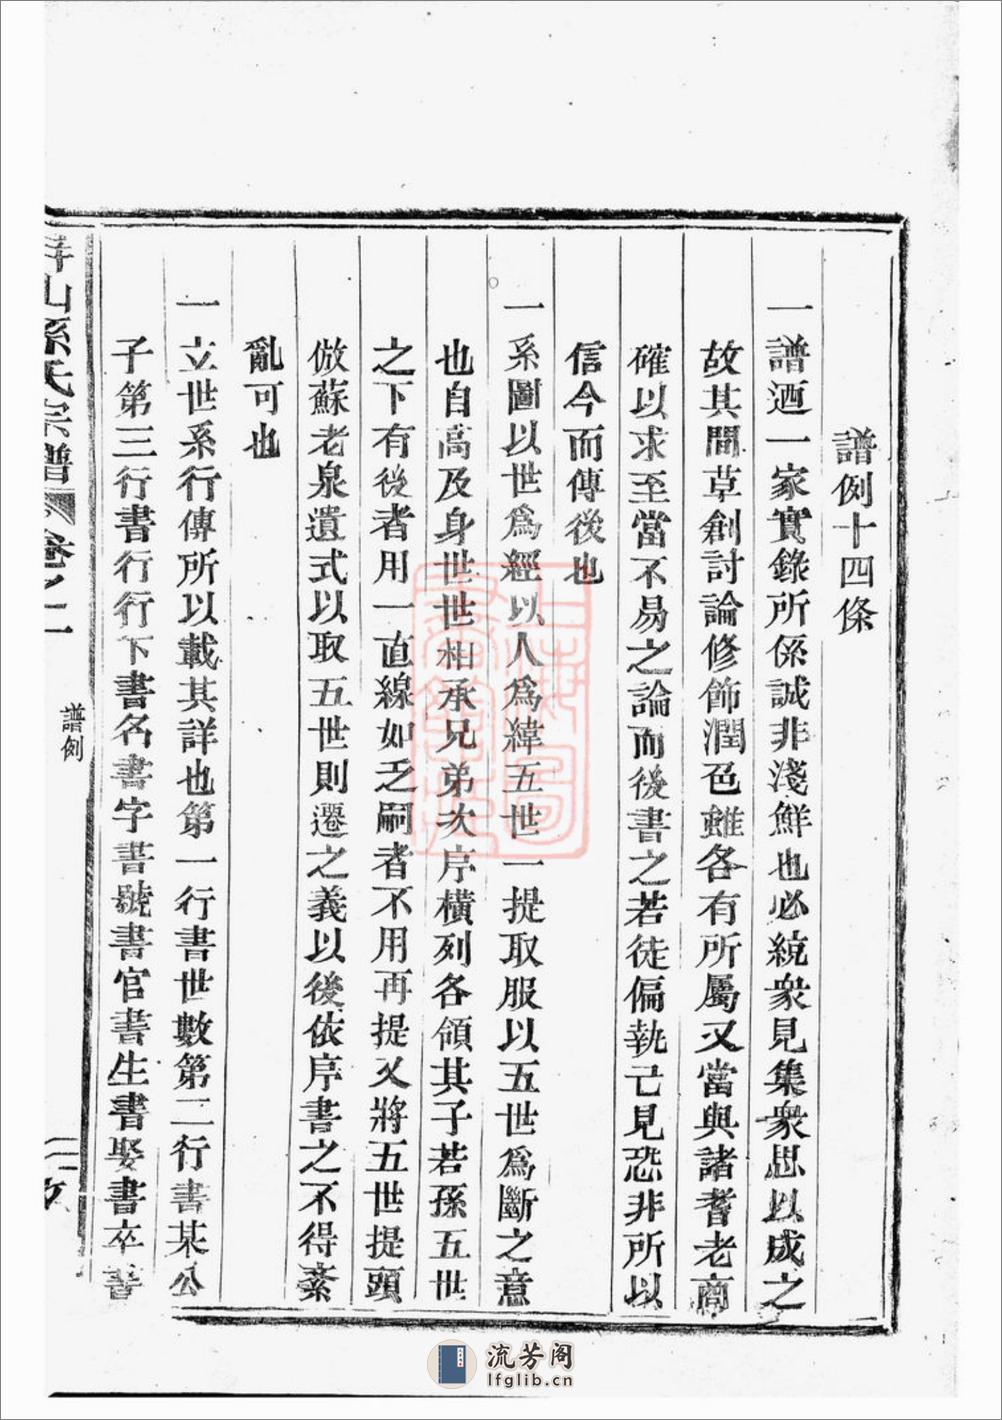 譜例十四條
一譜迺一家實錄所係誠非淺鮮也必統衆見集衆思以成之
故其間草創討論修飾潤色雖各有所屬又當與諸耆老商
確以求至當不易之論而後書之若徒偏執己見恐非所以
信今而傳後也
一系圖以世爲經以人爲緯五世一提取服以五世爲斷之意
也自高及身世世相承兄弟次序橫列各領其子若孫五世
之下有後者用一直線如乏嗣者不用再提又將五世提頭
倣蘇老泉遺式以取五世則遷之義以後依序書之不得紊
亂可也
一立世系行傳所以載其詳也第一行書世數第二行書某公
子第三行書行行下書名書字書號書官書生書娶書卒書
山孫氏宗譜 卷之一
譜例
流芳阁
lfglib.cn